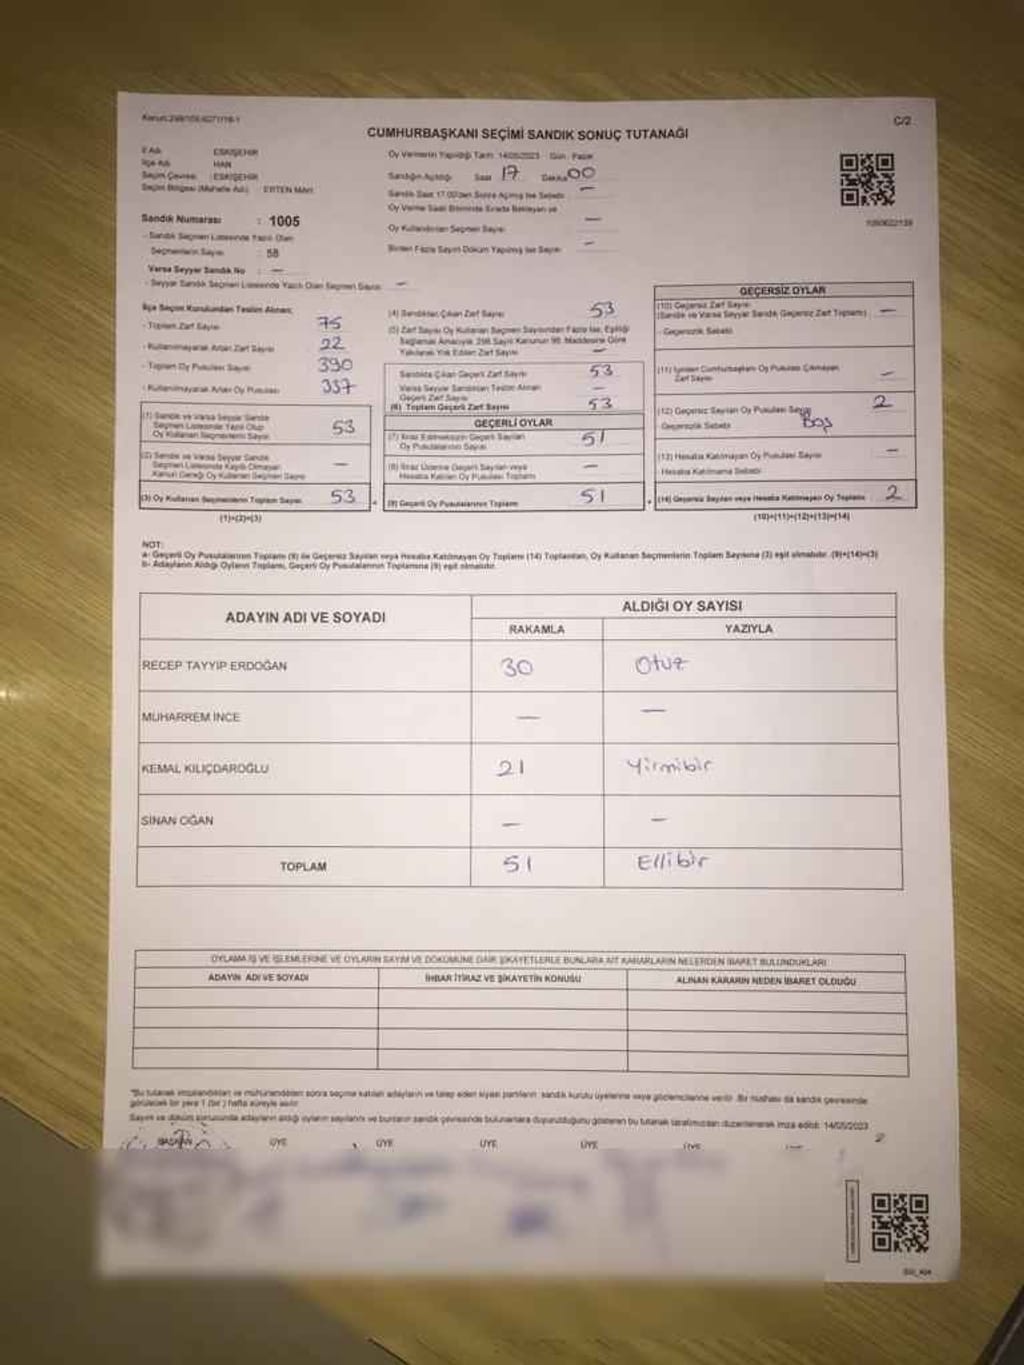 C/2
CUMHURBAŞKANI SEÇİMİ SANDIK SONUÇ TUTANAĞI
İl Adı : ESKİŞEHİR
İlçe Adı : HAN
Seçim Çevresi : ESKİŞEHİR
Seçim Bölgesi (Mahalle Adı) :
Sandık Numarası : 1005
- Sandık Seçmen Listesinde Yazılı Olan
Seçmenlerin Sayısı : 58
Varsa Seyyar Sandık No : —
- Seyyar Sandık Seçmen Listesinde Yazılı Olan Seçmen Sayısı : —
Oy Vermenin Yapıldığı Tarih: 14/05/2023 Gün : Pazar
Sandığın Açıldığı Saat 17 Dakika 00
Sandık Saat 17.00'den Sonra Açılmış İse Sebebi —
Oy Verme Saati Bitiminde Sırada Bekleyen ve
Oy Kullandırılan Seçmen Sayısı —
Birden Fazla Sayım Döküm Yapılmış İse Sayısı —
İlçe Seçim Kurulundan Teslim Alınan;
- Toplam Zarf Sayısı 75
- Kullanılmayarak Artan Zarf Sayısı 22
- Toplam Oy Pusulası Sayısı 390
- Kullanılmayarak Artan Oy Pusulası 337
(1) Sandık ve Varsa Seyyar Sandık
Seçmen Listesinde Yazılı Olup
Oy Kullanan Seçmenlerin Sayısı 53
(2) Sandık ve Varsa Seyyar Sandık
Seçmen Listesinde Kayıtlı Olmayan
Kanun Gereği Oy Kullanan Seçmen Sayısı —
(3) Oy Kullanan Seçmenlerin Toplam Sayısı 53
(1)+(2)=(3)
(4) Sandıktan Çıkan Zarf Sayısı 53
(5) Zarf Sayısı Oy Kullanan Seçmen Sayısından Fazla İse, Eşitliği
Sağlamak Amacıyla 298 Sayılı Kanunun 98. Maddesine Göre
Yakılarak Yok Edilen Zarf Sayısı —
Sandıkta Çıkan Geçerli Zarf Sayısı 53
Varsa Seyyar Sandıktan Teslim Alınan
Geçerli Zarf Sayısı —
(6) Toplam Geçerli Zarf Sayısı 53
GEÇERLİ OYLAR
(7) İtiraz Edilmeksizin Geçerli Sayılan
Oy Pusulalarının Sayısı 51
(8) İtiraz Üzerine Geçerli Sayılan veya
Hesaba Katılan Oy Pusulası Toplamı —
(9) Geçerli Oy Pusulalarının Toplamı 51
GEÇERSİZ OYLAR
(10) Geçersiz Zarf Sayısı
(Sandık ve Varsa Seyyar Sandık Geçersiz Zarf Toplamı) —
- Geçersizlik Sebebi
(11) İçinden Cumhurbaşkanı Oy Pusulası Çıkmayan
Zarf Sayısı —
(12) Geçersiz Sayılan Oy Pusulası Sayısı 2
- Geçersizlik Sebebi Boş
(13) Hesaba Katılmayan Oy Pusulası Sayısı —
- Hesaba Katılmama Sebebi
(14) Geçersiz Sayılan veya Hesaba Katılmayan Oy Toplamı 2
(10)+(11)+(12)+(13)=(14)
NOT:
a- Geçerli Oy Pusulalarının Toplamı (9) ile Geçersiz Sayılan veya Hesaba Katılmayan Oy Toplamı (14) Toplamları, Oy Kullanan Seçmenlerin Toplam Sayısına (3) eşit olmalıdır. (9)+(14)=(3)
b- Adayların Aldığı Oyların Toplamı, Geçerli Oy Pusulalarının Toplamına (9) eşit olmalıdır.
ADAYIN ADI VE SOYADI ALDIĞI OY SAYISI
RAKAMLA YAZIYLA
RECEP TAYYİP ERDOĞAN 30 Otuz
MUHARREM İNCE — —
KEMAL KILIÇDAROĞLU 21 Yirmibir
SİNAN OĞAN — —
TOPLAM 51 Ellibir
OYLAMA İŞ VE İŞLEMLERİNE VE OYLARIN SAYIM VE DÖKÜMÜNE DAİR ŞİKAYETLERLE BUNLARA AİT KARARLARIN NELERDEN İBARET BULUNDUKLARI
ADAYIN ADI VE SOYADI İHBAR İTİRAZ VE ŞİKAYETİN KONUSU ALINAN KARARIN NEDEN İBARET OLDUĞU
"Bu tutanak imzalandıktan ve mühürlendikten sonra seçime katılan adayların ve talep eden siyasi partilerin sandık kurulu üyelerine veya gözlemcilerine verilir. Bir nüshası da sandık çevresinde
görülecek bir yere 1 (bir) hafta süreyle asılır.
Sayım ve döküm sonucunda adayların aldığı oyların sayılarını ve bunların sandık çevresinde bulunanlara duyurulduğunu gösteren bu tutanak tarafımızdan düzenlenerek imza edildi. 14/05/2023
BAŞKAN ÜYE ÜYE ÜYE ÜYE ÜYE